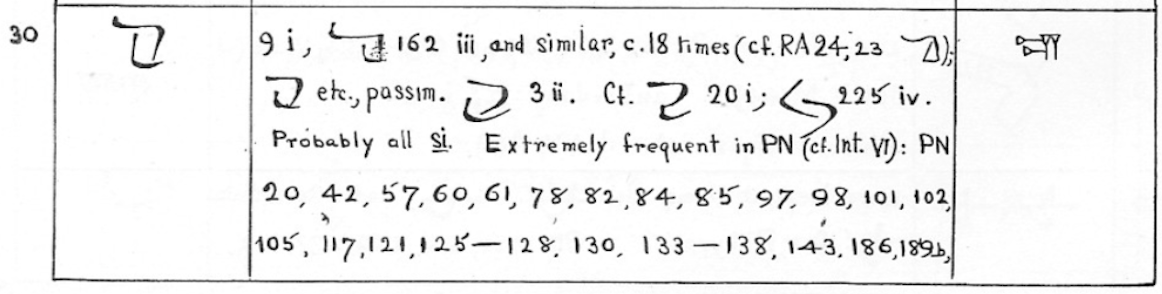 30 9 i, 162 iii, and similar, c. 18 times (cf. RA 24, 23 );
etc., passim. 3 ii. Cf. 20 i; 225 iv.
Probably all si. Extremely frequent in PN (cf. Int. VI): PN
20, 42, 57, 60, 61, 78, 82, 84, 85, 97, 98, 101, 102,
105, 117, 121, 125—128, 130, 133—138, 143, 186, 189b,